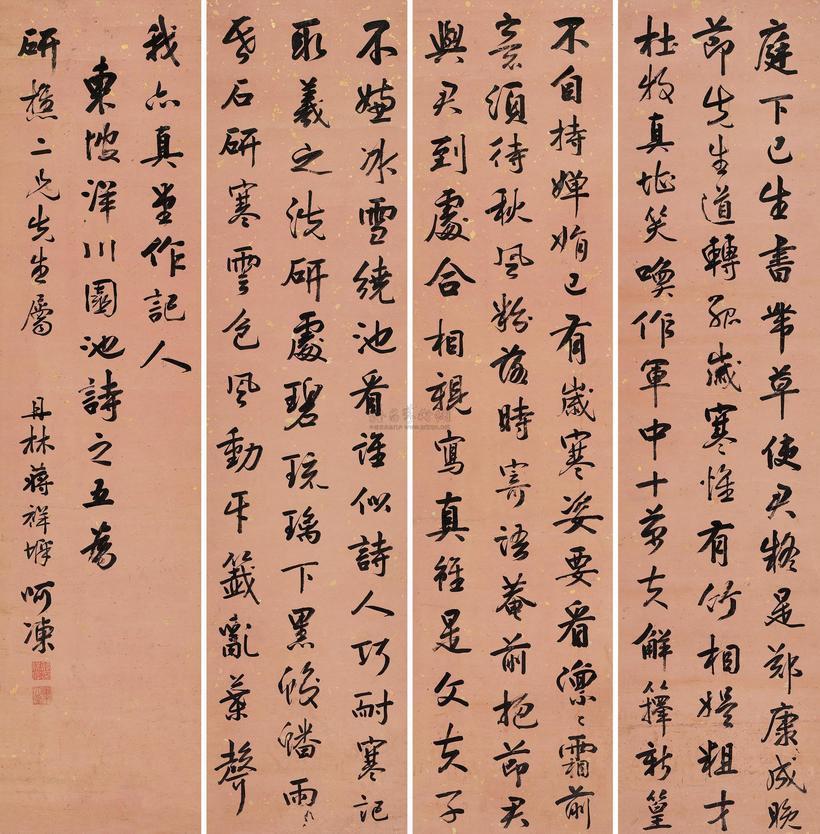 庭下已生書帶草使君疑是鄭康成晚
節先生道轉孤歲寒惟有竹相娛粗才
杜牧真堪笑喚作軍中十萬夫解籜新篁
不自持嬋娟已有歲寒姿要看凜〻霜前
意須待秋風粉落時寄語菴前抱節君
與君到處合相親寫真雖是文夫子
不嫌冰雪繞池看誰似詩人巧耐寒記
取羲之洗研處碧琉璃下黑蛟蟠雨
昏石研寒雲色風動牙籤亂葉聲
我亦真堂作記人
東坡洋川園池詩之五為
研樵二兄先生屬 丹林蔣祥墀呵凍